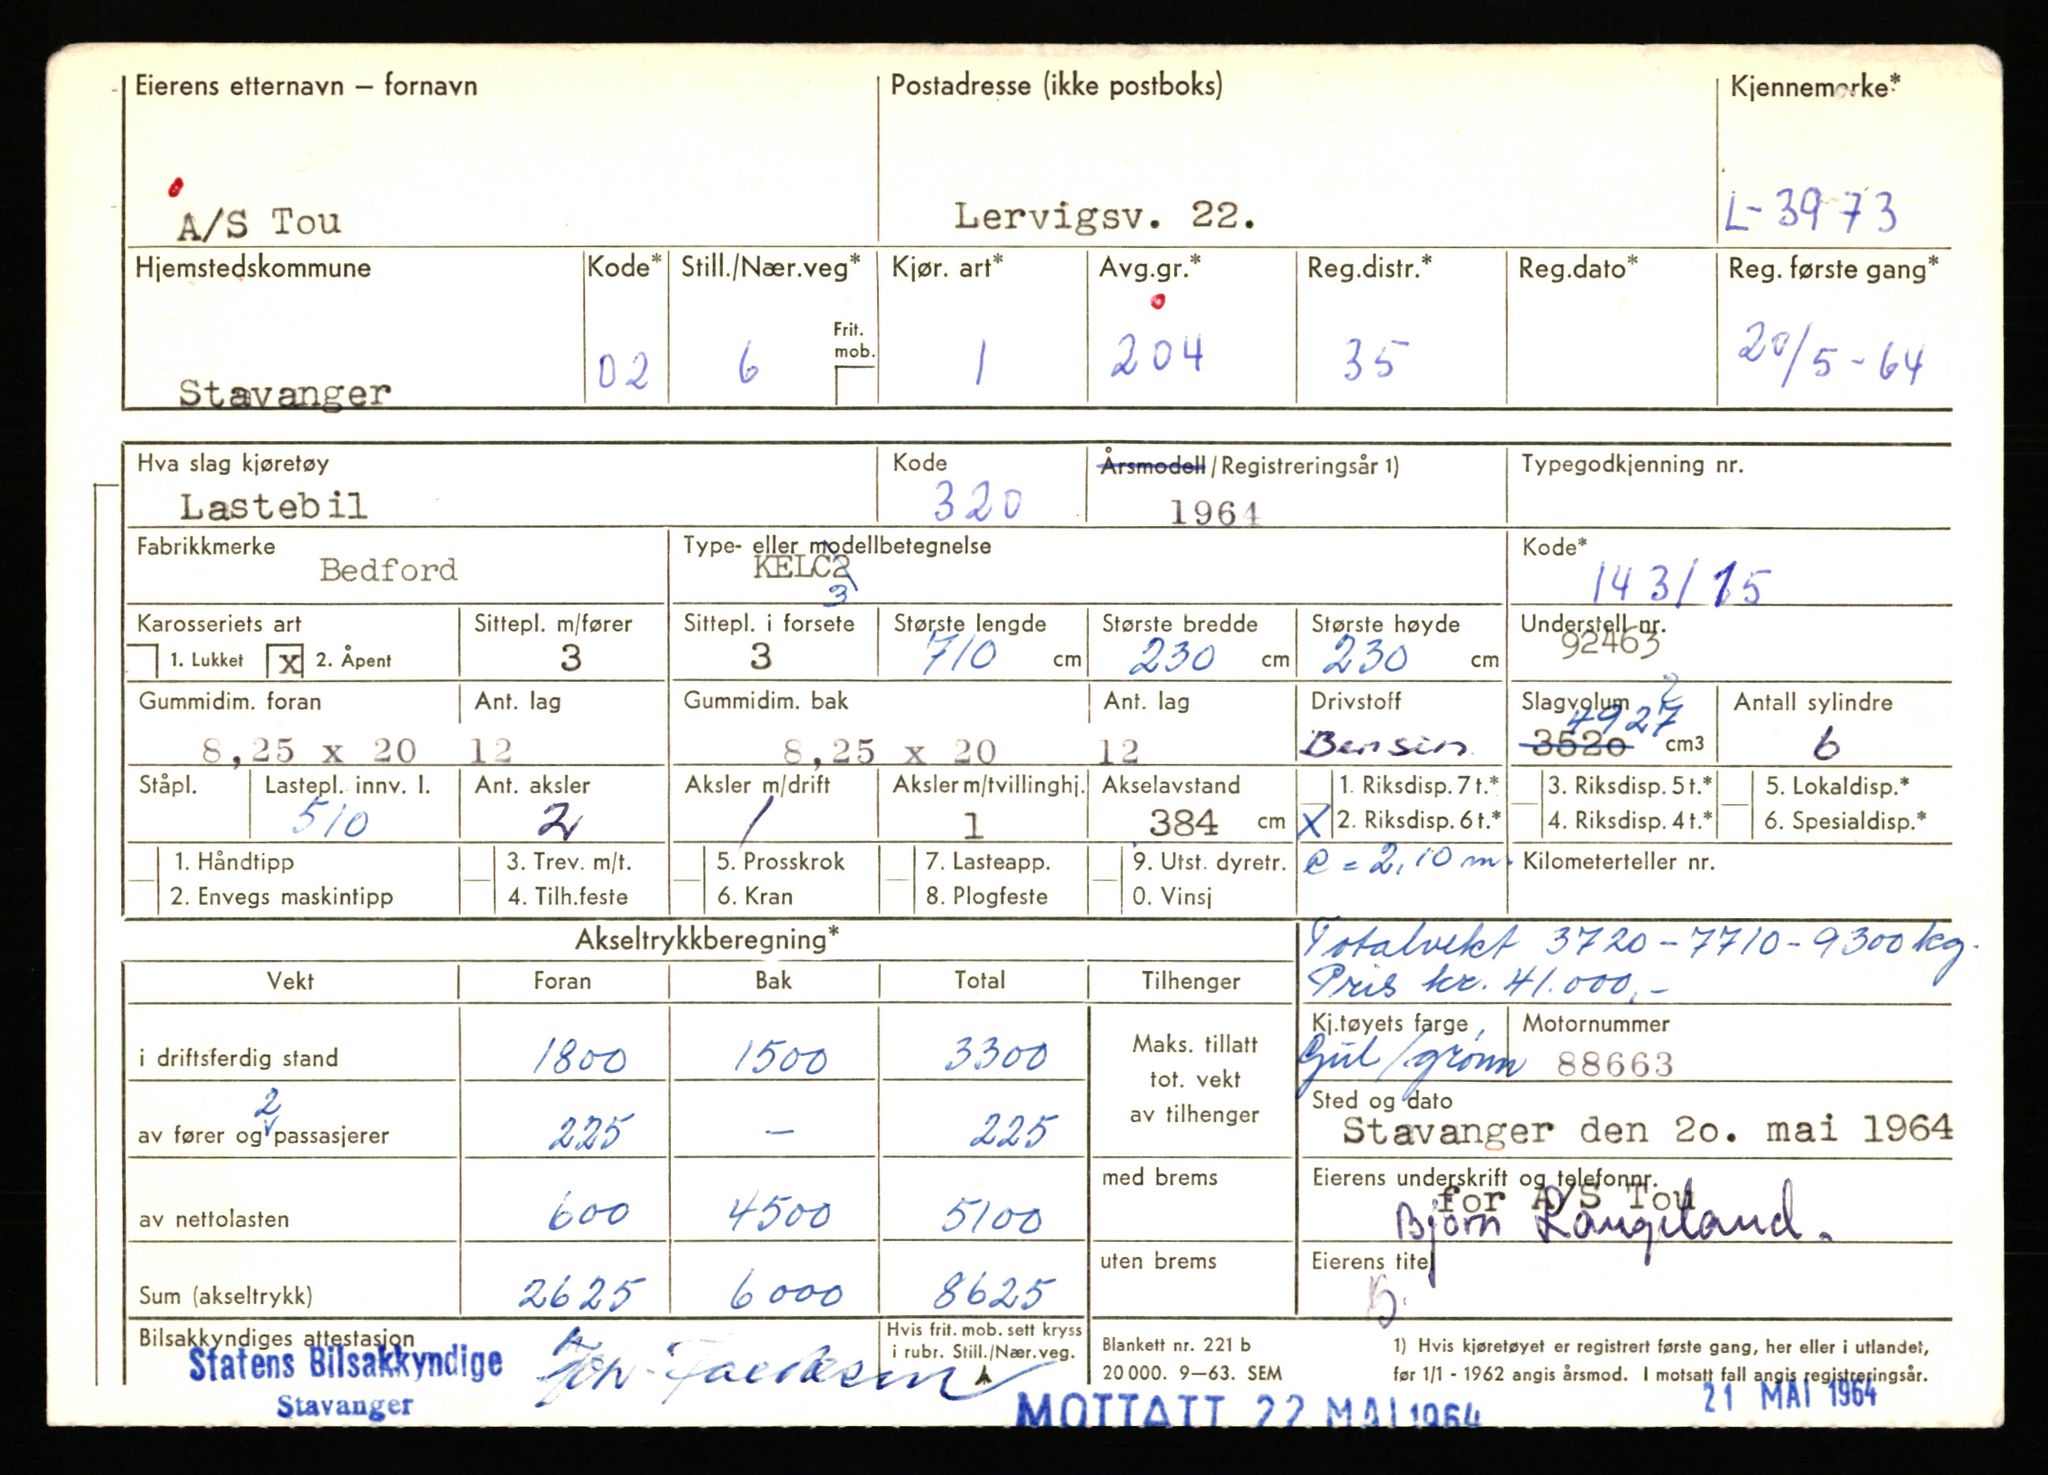 Eierens etternavn – fornavn Postadresse (ikke postboks) Kjennemerke*
A/S Tou Lervigsv. 22. L-3973
Hjemstedskommune Kode* Still./Nær.veg* Kjør. art* Avg.gr.* Reg.distr.* Reg.dato* Reg. første gang*
Frit. mob.
Stavanger 02 6 1 204 35 20/5-64
Hva slag kjøretøy Kode Årsmodell/Registreringsår 1) Typegodkjenning nr.
Lastebil 320 1964
Fabrikkmerke Type- eller modellbetegnelse Kode*
Bedford KELC2 143/15
3
Karosseriets art Sittepl. m/fører Sittepl. i forsete Største lengde Største bredde Største høyde Understell nr.
1. Lukket x 2. Åpent 3 3 710 cm 230 cm 230 cm 92463
Gummidim. foran Ant. lag Gummidim. bak Ant. lag Drivstoff Slagvolum Antall sylindre
2
4927
8,25 x 20 12 8,25 x 20 12 Bensin 3520 cm3 6
Ståpl. Lastepl. innv. l. Ant. aksler Aksler m/drift Aksler m/tvillinghj. Akselavstand 1. Riksdisp. 7 t.* 3. Riksdisp. 5 t.* 5. Lokaldisp.*
510 2 1 1 384 cm X 2. Riksdisp. 6 t.* 4. Riksdisp. 4 t.* 6. Spesialdisp.*
1. Håndtipp 3. Trev. m/t. 5. Prosskrok 7. Lasteapp. 9. Utst. dyretr. e = 2,10 m. Kilometerteller nr.
2. Envegs maskintipp 4. Tilh.feste 6. Kran 8. Plogfeste 0. Vinsj
Akseltrykkberegning* Totalvekt 3720 – 7710 – 9300 kg.
Vekt Foran Bak Total Tilhenger Pris kr. 41.000,-
Kj.tøyets farge Motornummer
i driftsferdig stand 1800 1500 3300 Maks. tillatt Gul/grønn 88663
tot. vekt
av tilhenger
Sted og dato
2
av fører og passasjerer 225 – 225 Stavanger den 20. mai 1964
med brems Eierens underskrift og telefonnr.
for A/S Tou
av nettolasten 600 4500 5100 Bjørn Laugeland.
uten brems Eierens titel
Sum (akseltrykk) 2625 6000 8625
Bilsakkyndiges attestasjon Hvis frit. mob. sett kryss i rubr. Still./Nær.veg. Blankett nr. 221 b 1) Hvis kjøretøyet er registrert første gang, her eller i utlandet,
20 000. 9–63. SEM før 1/1 - 1962 angis årsmod. I motsatt fall angis registreringsår.
Statens Bilsakkyndige
Stavanger
MOTTATT 22 MAI 1964 21 MAI 1964